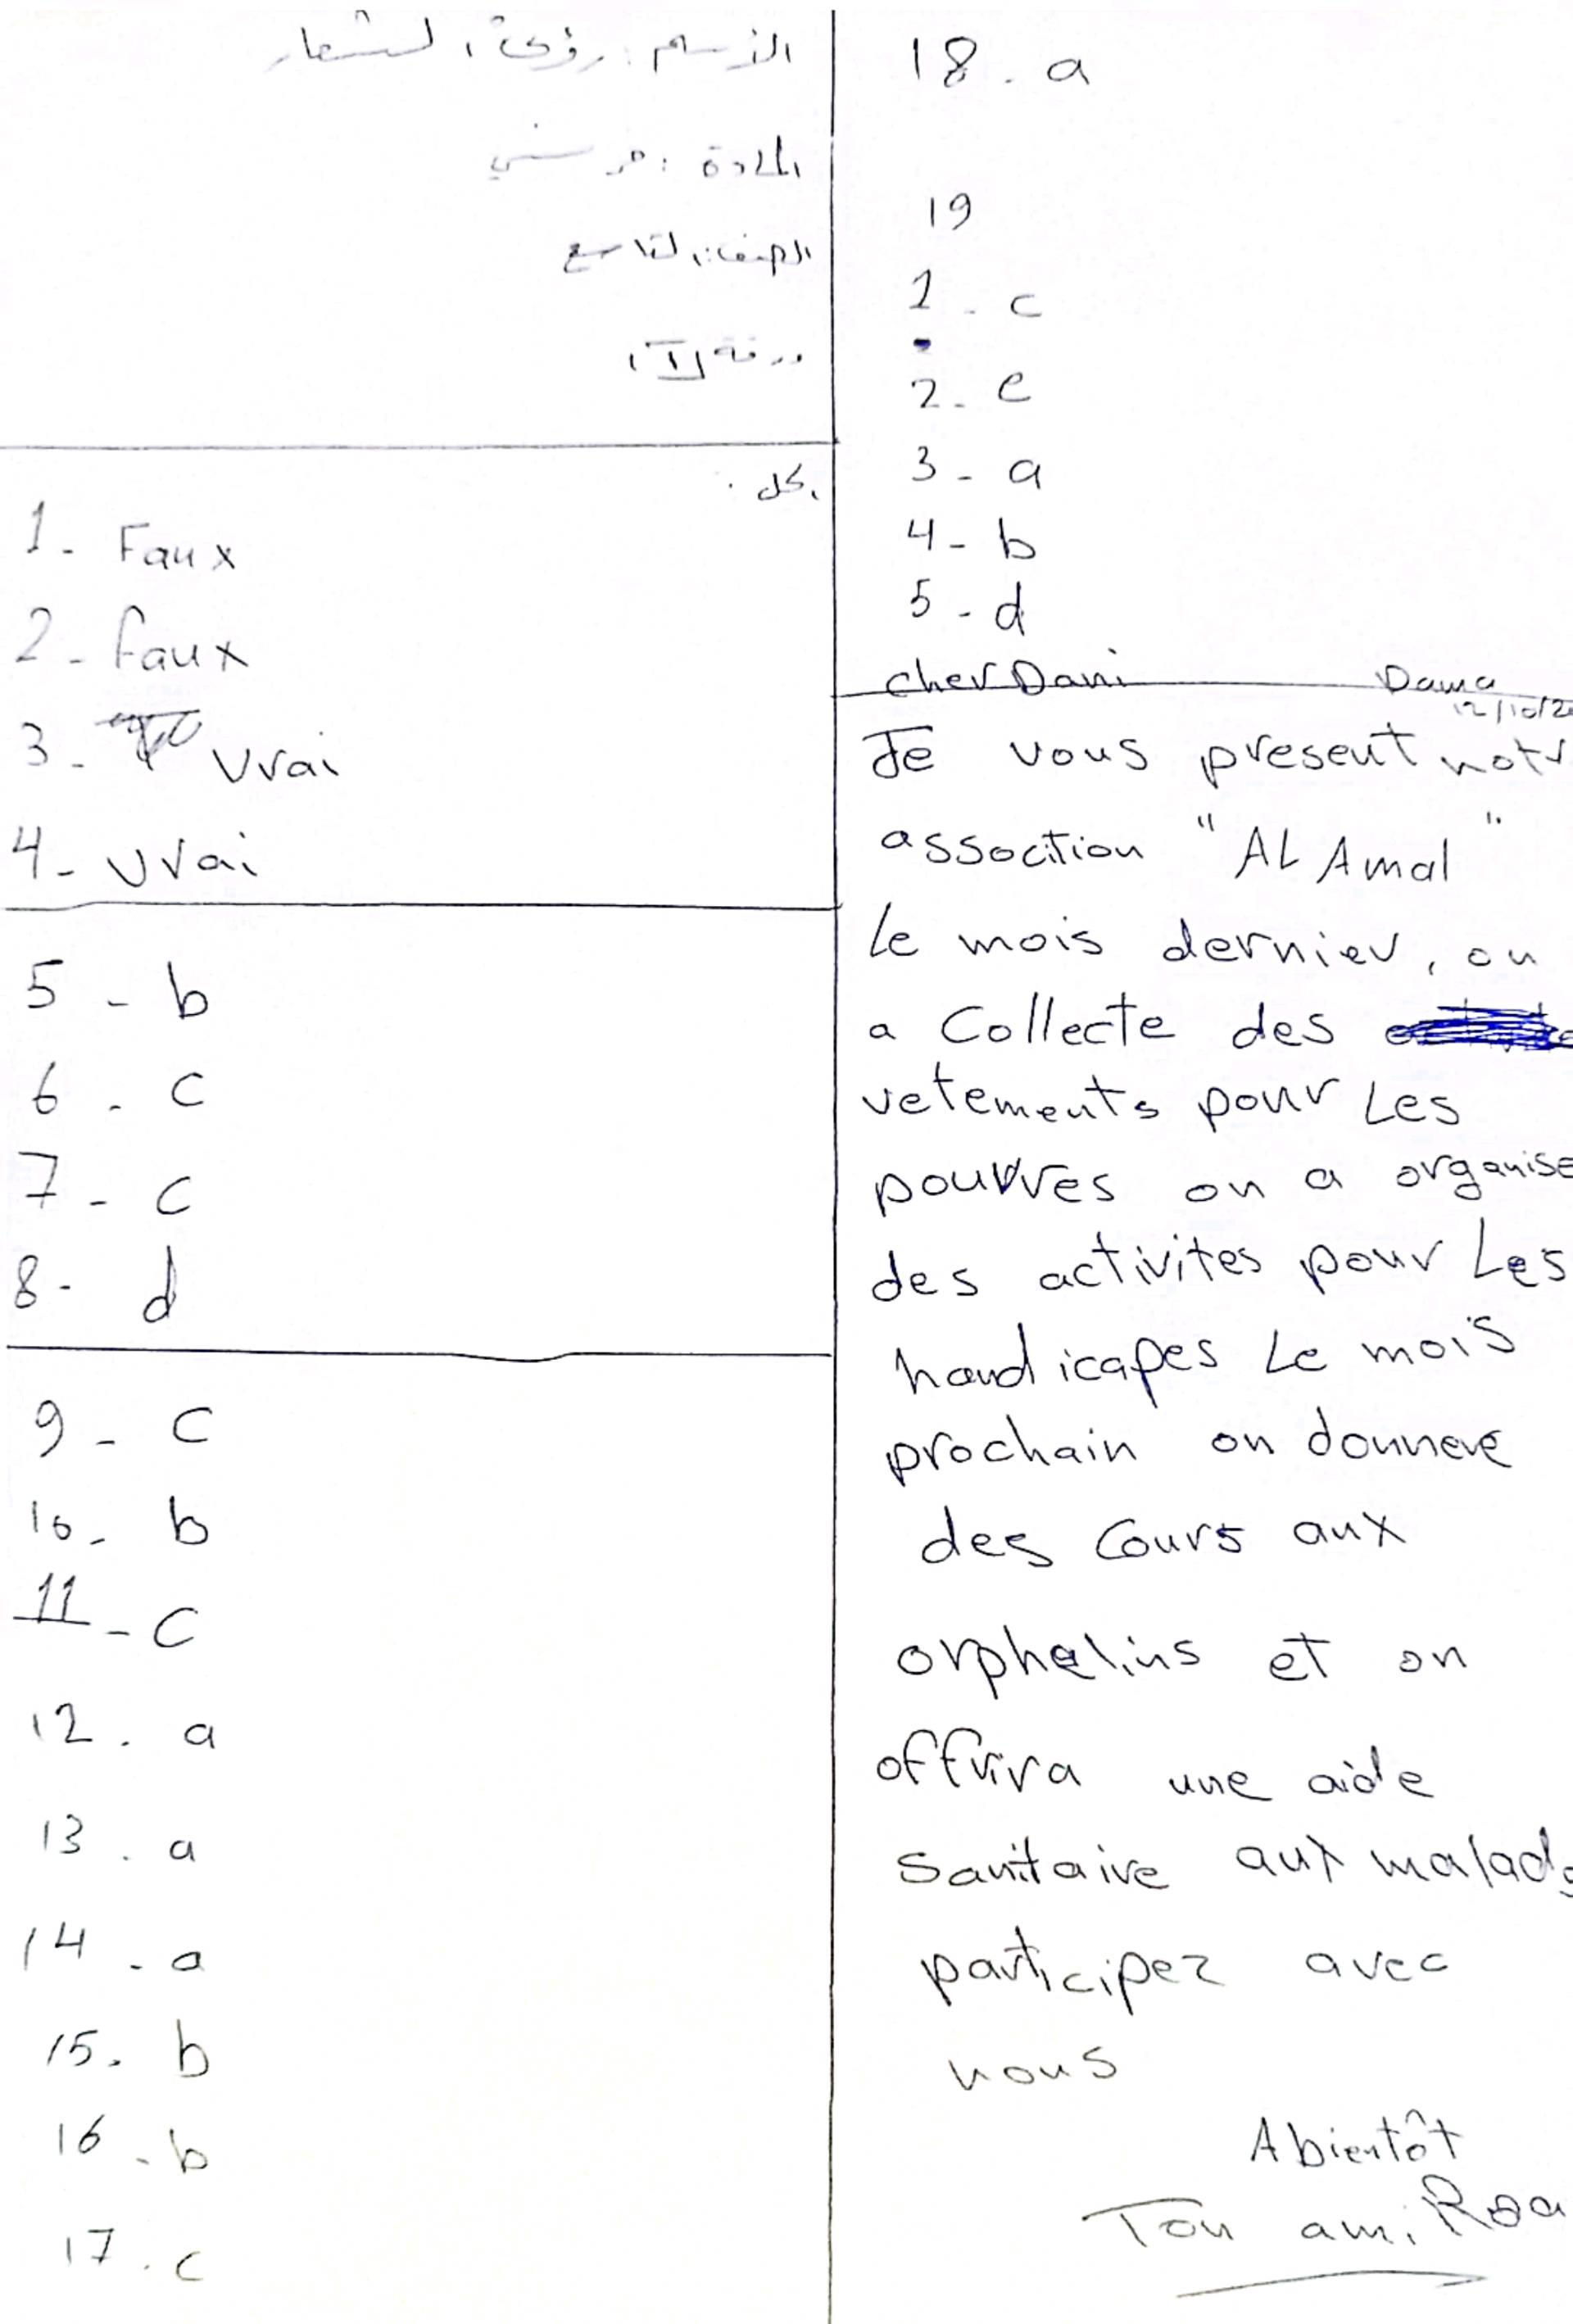 الاسم : رؤى الشعار
المادة : فرنسي
الصف : التاسع
ورقة (1)
الحل :
1- Faux
2- faux
3- Vrai
4- Vrai
5 - b
6 - c
7 - c
8 - d
9 - c
10 - b
11 - c
12 - a
13 - a
14 - a
15 - b
16 - b
17 - c
18 - a
19
1 - c
2 - e
3 - a
4 - b
5 - d
cher Dani Dama
12/10/2
Je vous present notr
assocition "AL Amal"
Le mois dernier, on
a Collecte des
vetements pour Les
pouvres on a organise
des activites pour Les
handicapes Le mois
prochain on donnere
des Cours aux
orphelins et on
offrira une aide
Sanitaire aux malad
participez avec
nous
Abientôt
Ton ami Roa